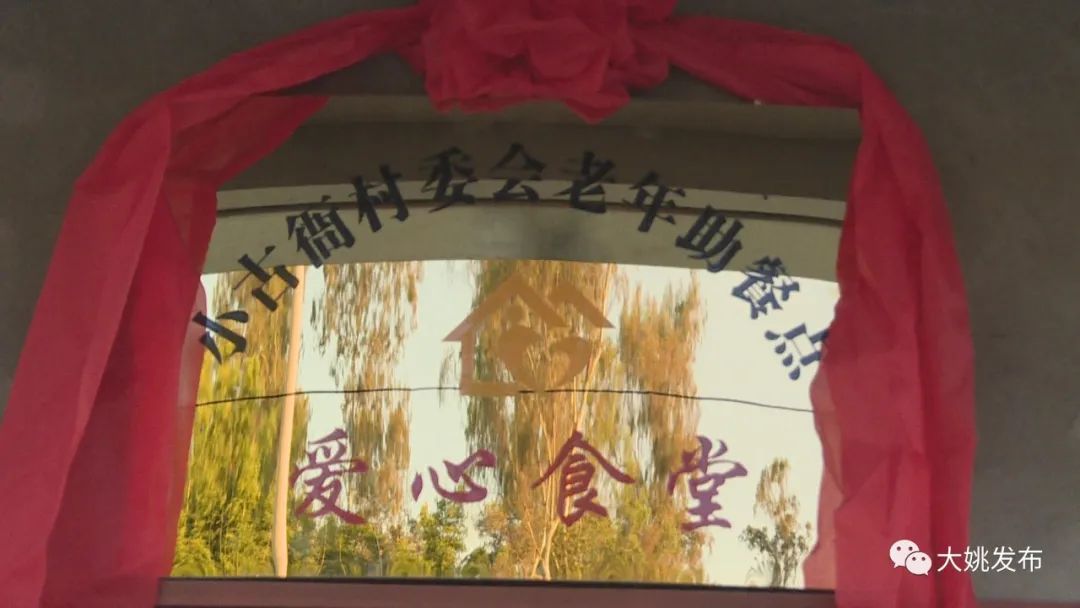 小古衙村委会老年助餐点
爱心食堂
大姚发布